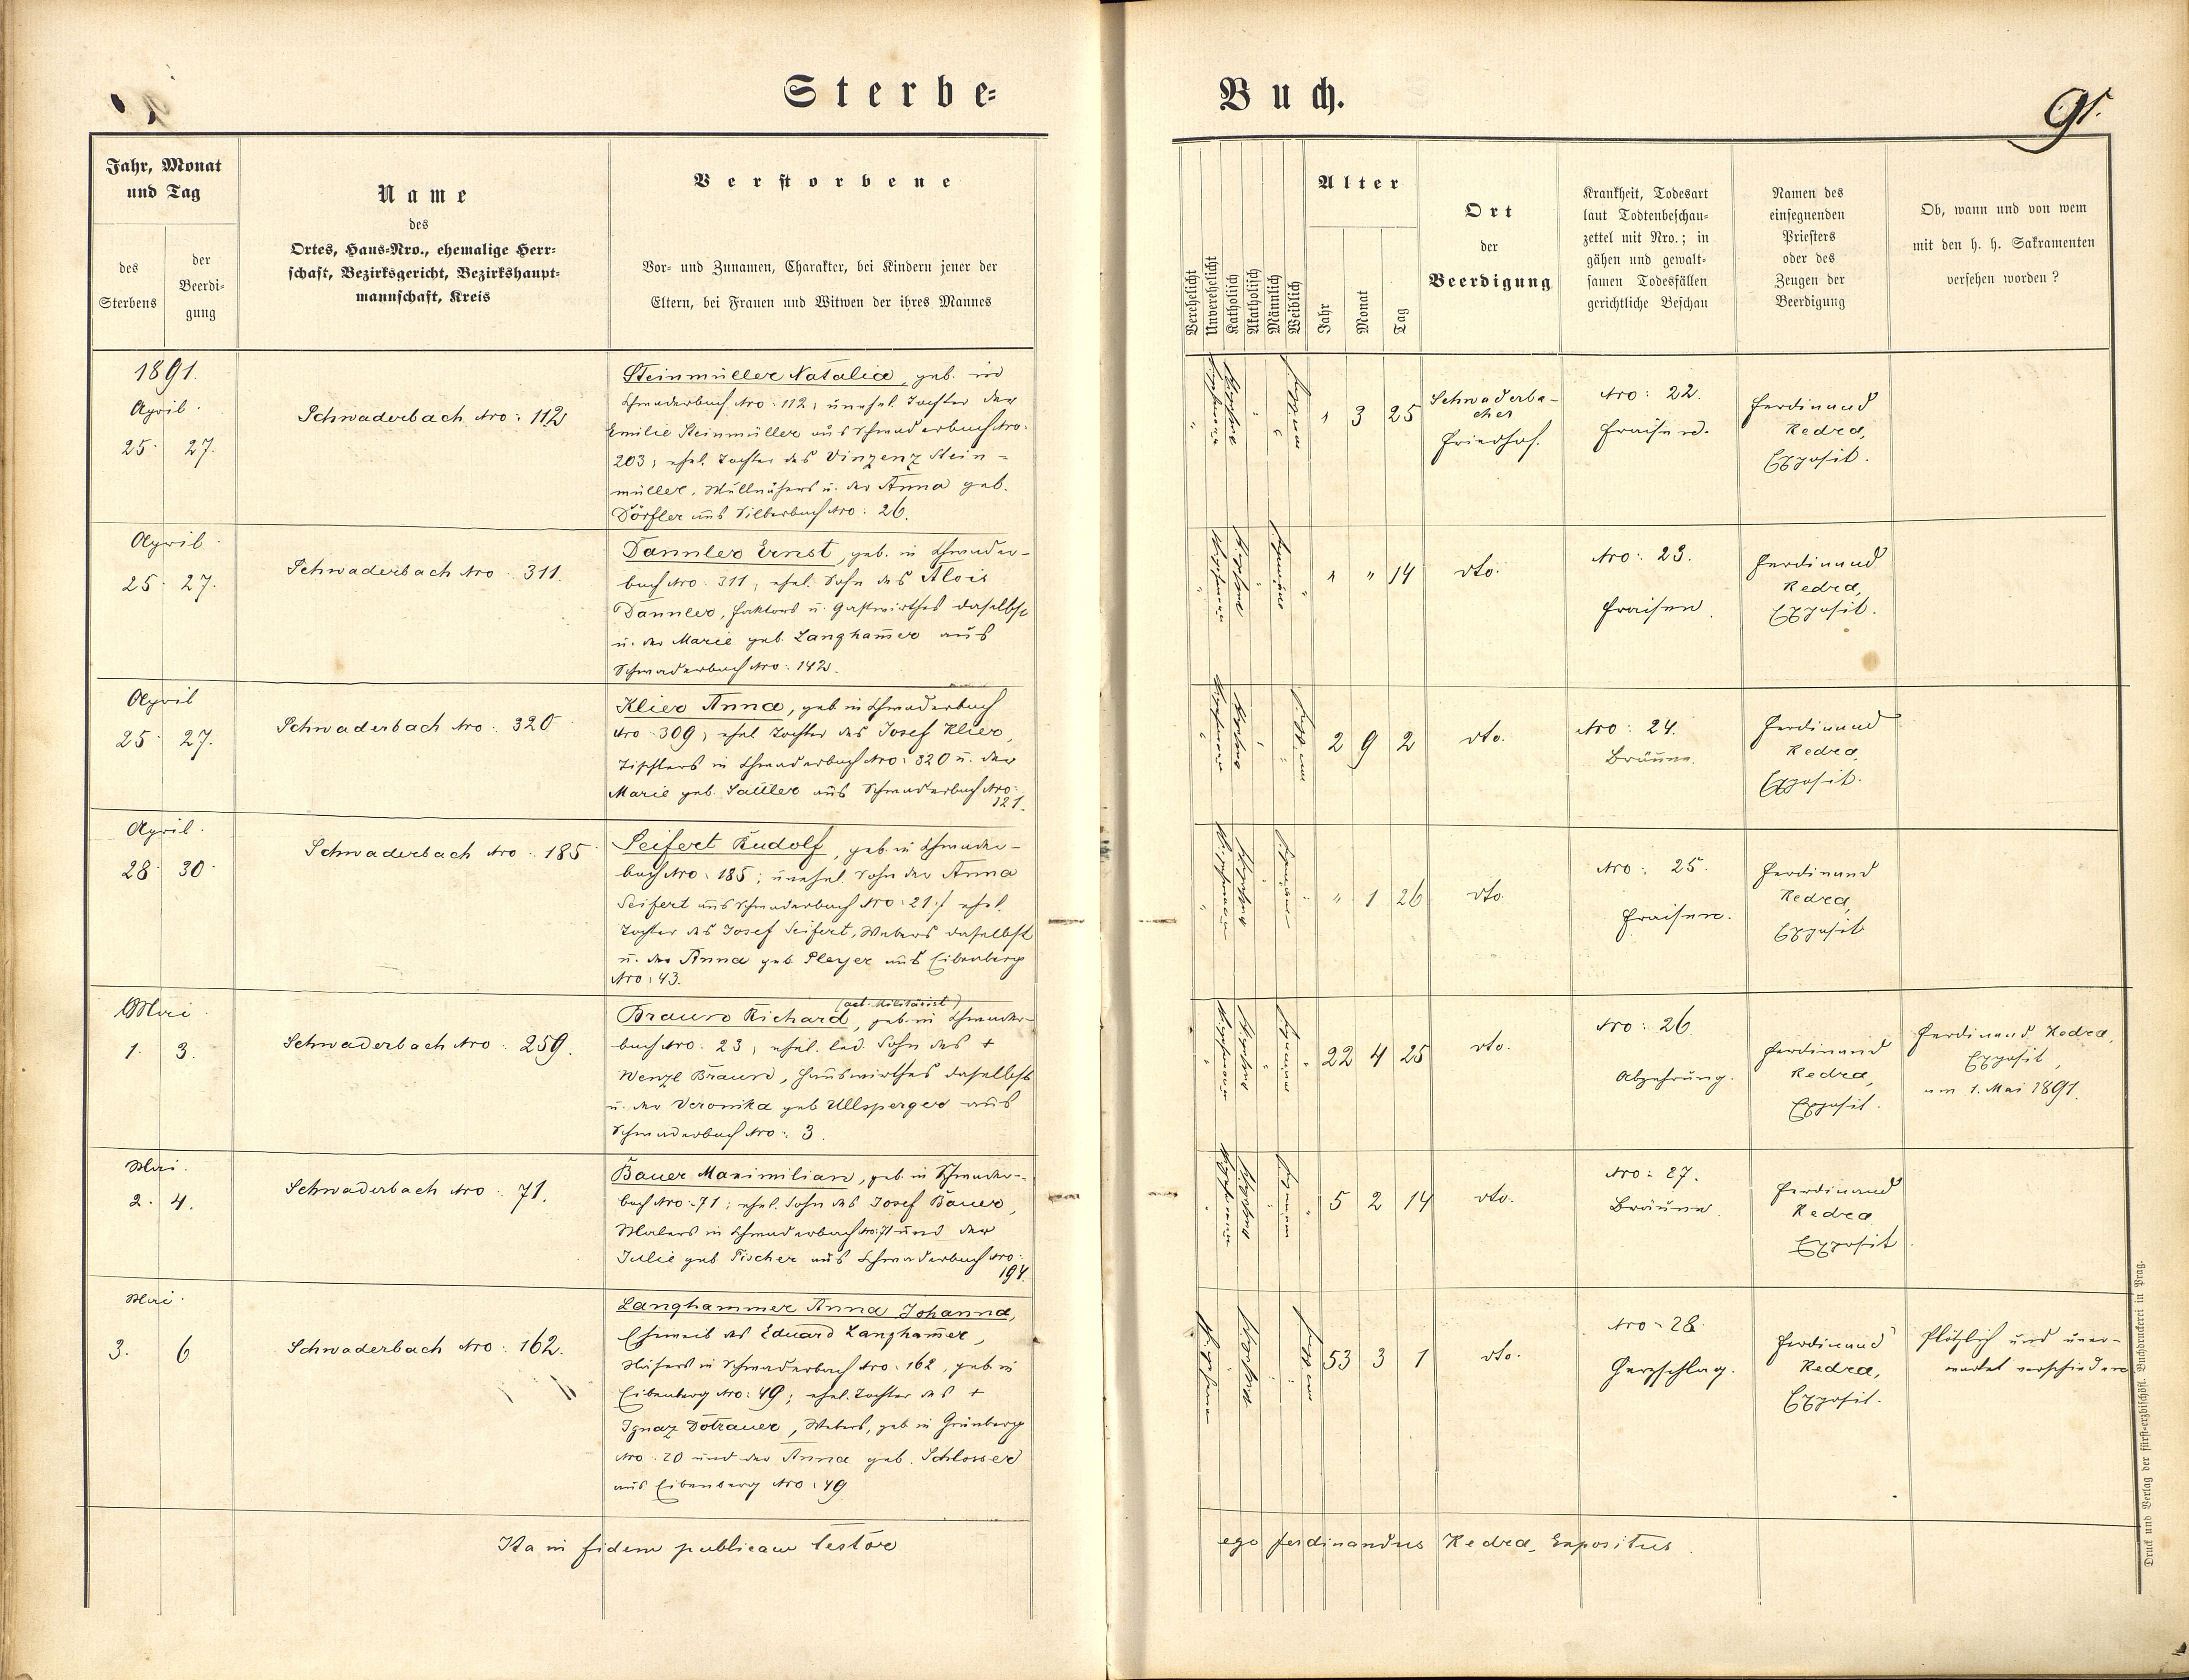 Sterbe=
Buch.
91.
Jahr, Monat
und Tag
des
Sterbens
der
Beerdi=
gung
Name
des
Ortes, Haus=Nro., ehemalige Herr=
schaft, Bezirksgericht, Bezirkshaupt=
mannschaft, Kreis
Verstorbene
Vor= und Zunamen, Charakter, bei Kindern jener der
Eltern, bei Frauen und Witwen der ihres Mannes
Verehelicht
Unverehelicht
Katholisch
Akatholisch
Männlich
Weiblich
Alter
Jahr
Monat
Tag
Ort
der
Beerdigung
Krankheit, Todesart
laut Todtenbeschau=
zettel mit Nro.; in
gähen und gewalt=
samen Todesfällen
gerichtliche Beschau
Namen des
einsegnenden
Priesters
oder des
Zeugen der
Beerdigung
Ob, wann und von wem
mit den h. h. Sakramenten
versehen worden?
1891.
April.
25. 27.
Schwaderbach Nro: 112
Steinmüller Natalia, geb. in
Schwaderbach Nro: 112; unehel. Tochter der
Emilie Steinmüller aus Schwaderbach Nro:
203; ehel. Tochter des Vinzenz Stein-
müller, u. der Anna geb.
Dörfler aus Silberbach Nro: 26.
" 3 25
Schwaderba-
cher
Friedhof.
Nro: 22.
Fraisen.
Ferdinand
Kedra,
Exposit.
April
25. 27.
Schwaderbach Nro: 311.
Dannler Ernst, geb. in Schwader-
bach Nro: 311; ehel. Sohn des Alois
Dannler, Faktors u. Gastwirthes daselbst
u. der Marie geb. Langham̅er aus
Schwaderbach Nro: 142.
" " 14
dto.
Nro: 23.
Fraisen.
Ferdinand
Kedra,
Exposit.
April
25. 27.
Schwaderbach Nro: 320
Klier Anna, geb. in Schwaderbach
Nro: 309; ehel. Tochter des Josef Klier,
Tischlers in Schwaderbach Nro: 320 u. der
Marie geb. Sattler aus Schwaderbach Nro:
121.
2 9 2
dto.
Nro: 24.
Bräune.
Ferdinand
Kedra,
Exposit.
April.
28. 30.
Schwaderbach Nro: 185
Seifert Rudolf, geb. in Schwader-
bach Nro: 185; unehel. Sohn der Anna
Seifert aus Schwaderbach Nro: 217 ehel.
Tochter des Josef Seifert, Webers daselbst
u. der Anna geb. Pleyer aus Eibenberg
Nro: 43.
" 1 26
dto.
Nro: 25.
Fraisen.
Ferdinand
Kedra,
Exposit
Mai
1. 3.
Schwaderbach Nro: 259.
(act. Militärist)
Braun Richard, geb. in Schwader-
bach Nro: 23; ehel. led. Sohn des +
Wenzl Braun, Hauswirthes daselbst
u. der Veronika geb. Ullsperger aus
Schwaderbach Nro: 3.
22 4 25
dto.
Nro: 26
Abzehrung.
Ferdinand
Kedra,
Exposit.
Ferdinand Kedra,
Exposit,
am 1. Mai 1891.
Mai.
2. 4.
Schwaderbach Nro: 71.
Bauer Maximilian, geb. in Schwader-
bach Nro: 71; ehel. Sohn des Josef Bauer,
Malers in Schwaderbach Nro: 71 und der
Julie geb. Fischer aus Schwaderbach Nro:
194.
5 2 14
dto.
Nro: 27.
Bräune.
Ferdinand
Kedra
Exposit.
Mai.
3. 6
Schwaderbach Nro: 162.
Langhammer Anna Johanna,
Eheweib des Eduard Langham̅er,
in Schwaderbach Nro: 162, geb. in
Eibenberg Nro: 49; ehel. Tochter des +
Ignaz Dotzauer, Webers, geb. in Grünberg
Nro: 20 und der Anna geb. Schlosser
aus Eibenberg Nro: 49
53 3 1
dto.
Nro: 28
Herzschlag.
Ferdinand
Kedra,
Exposit.
Plötzlich und uner-
wartet verschieden
Ita in fidem publicam testor
ego Ferdinandus Kedra, Expositus.
Druck und Verlag der fürst=erzbischöfl. Buchdruckerei in Prag.